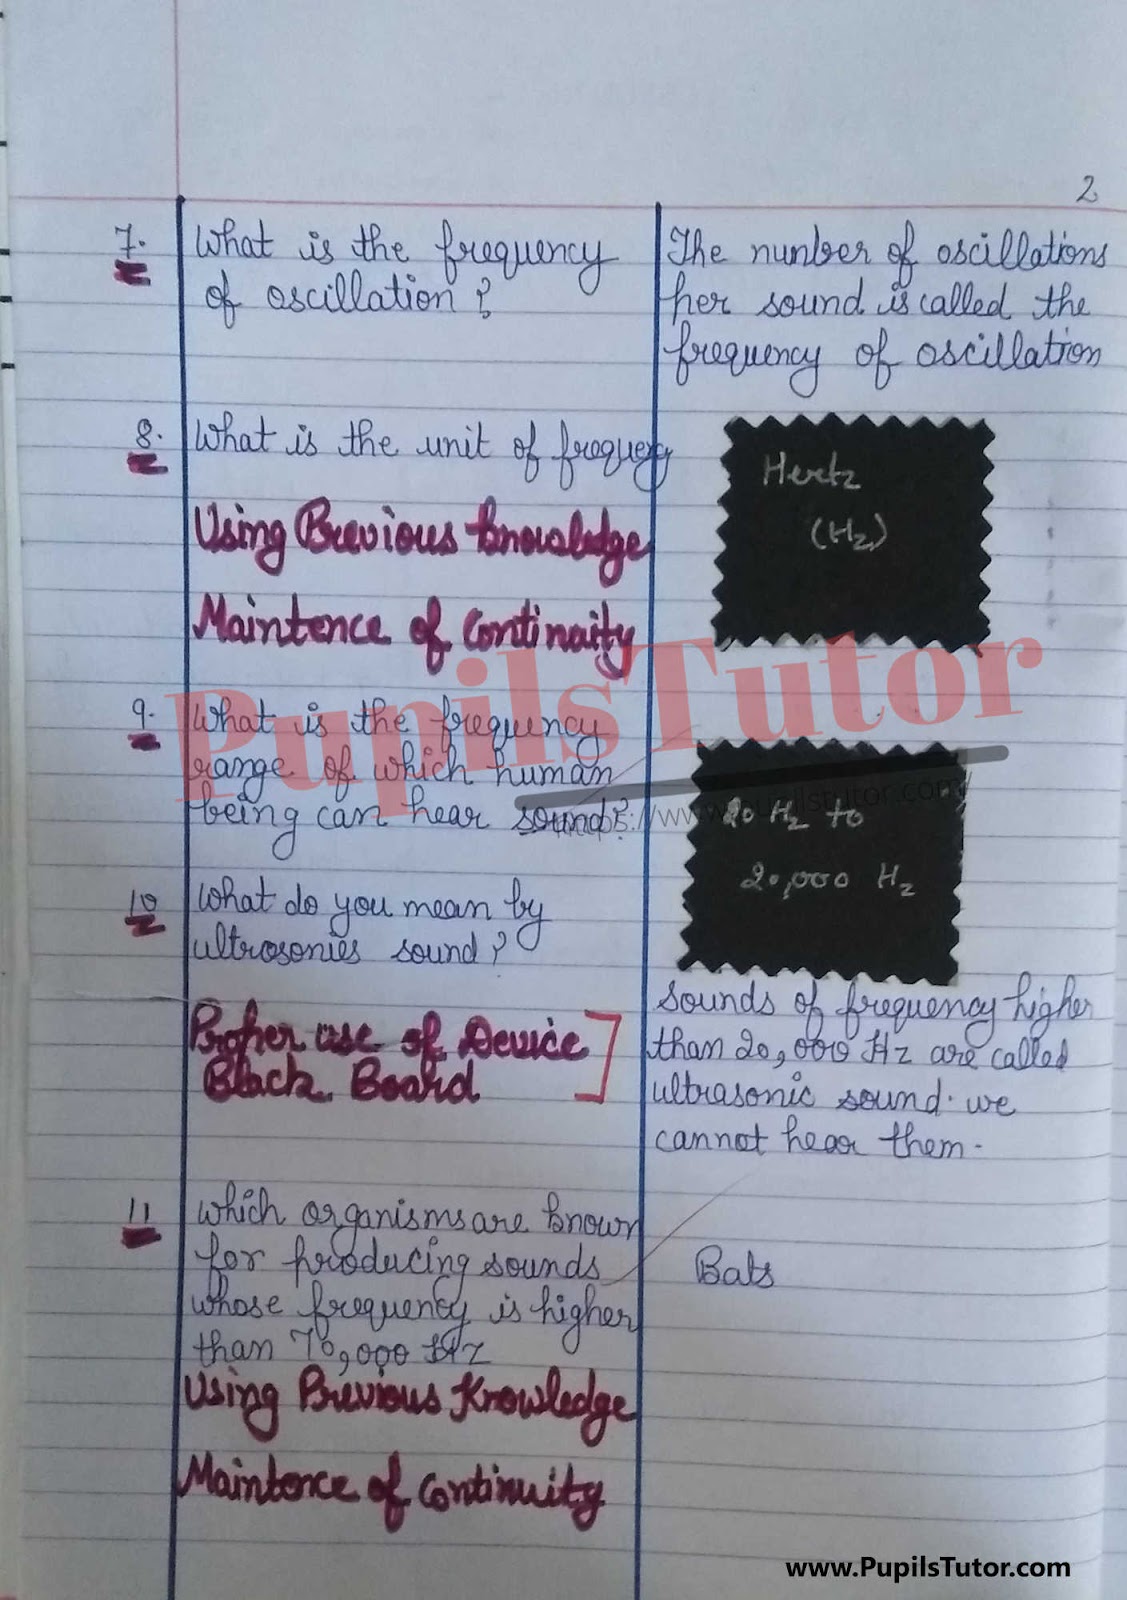 2
7. What is the frequency
of oscillation?
The nunber of oscillations
per sound is called the
frequency of oscillation
8. What is the unit of frequency
Hertz
(Hz)
Using Previous knowledge
Maintence of Continuity
PupilsTutor
9. What is the frequency
range of which human
being can hear sound?
https://www.pupilstutor.com/
20 Hz to
20,000 Hz
10 What do you mean by
ultrosonies sound?
Sounds of frequency higher
than 20,000 Hz are called
ultrasonic sound. we
cannot hear them.
Proper use of Device
Black Board
11 which organisms are known
for producing sounds
whose frequency is higher
than 70,000 Hz
Bats
Using Previous Knowledge
Maintence of Continuity
www.PupilsTutor.com